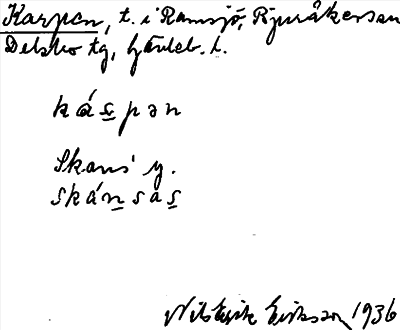 Karpen, t. i Ramsjö, Bjuråkers sn
Delsbo tg, Gävleb. l.
káspan
Skans y.
skánsas
Nils Erik Eriksson 1936